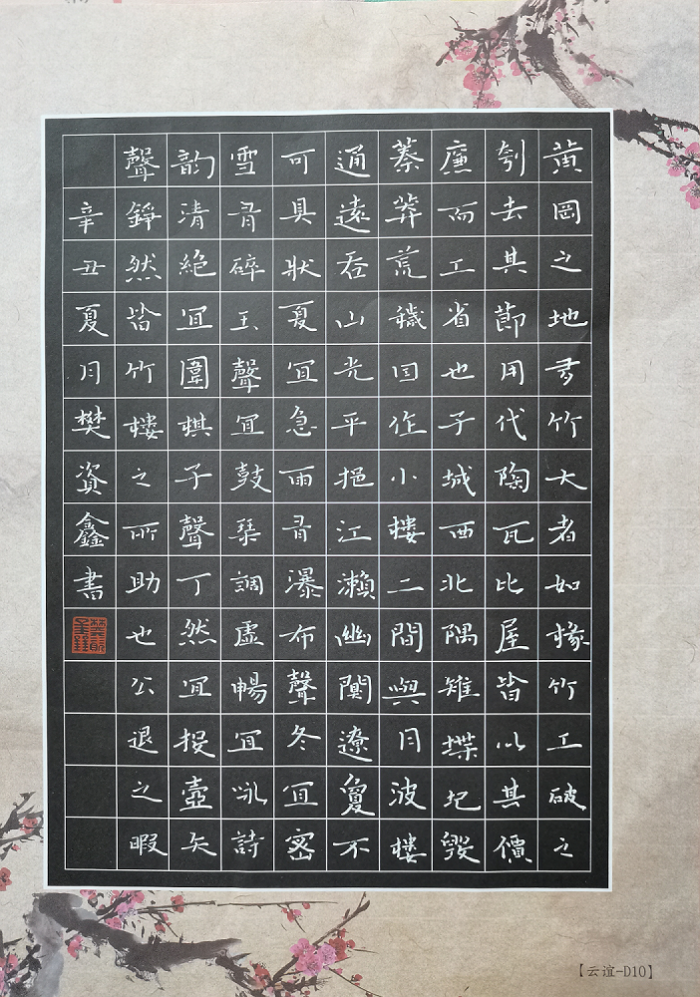 黄岡之地多竹大者如椽竹工破之
刳去其節用代陶瓦比屋皆以其價
廉而工省也子城西北隅雉堞圮毀
蓁莽荒穢因作小樓二間與月波樓
通遠吞山光平挹江瀨幽闃遼夐不
可具狀夏宜急雨有瀑布聲冬宜密
雪有碎玉聲宜鼓琴調虛暢宜咏詩
韵清絶宜圍棋子聲丁然宜投壺矢
聲錚然皆竹樓之所助也公退之暇
辛丑夏月樊資鑫書
【云谊-D10】